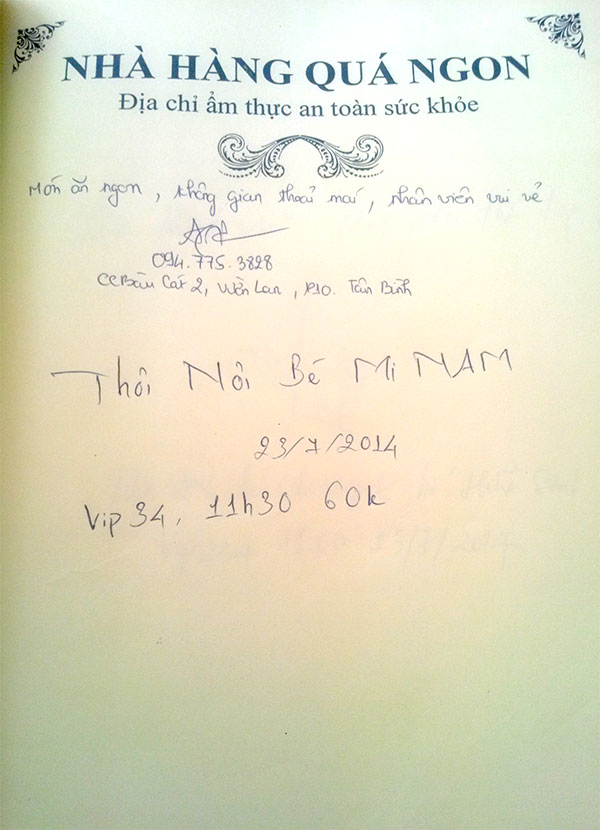 NHÀ HÀNG QUÁ NGON
Địa chỉ ẩm thực an toàn sức khỏe
Món ăn ngon, không gian thoải mái, nhân viên vui vẻ
094.775.3828
CCBàu Cát 2, P10. Tân Bình
Thôi Nôi Bé Mi NAM
23/7/2014
Vip 34, 11h30 60k